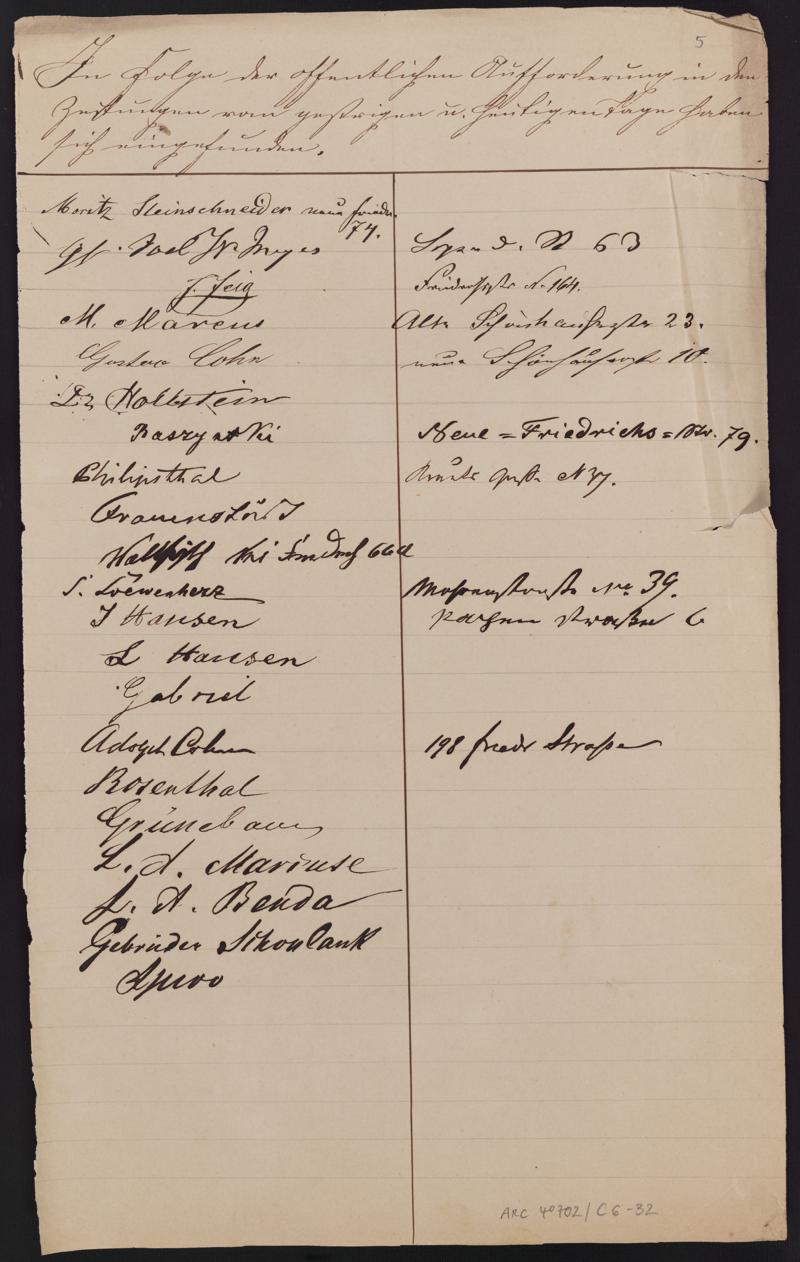 5
In Folge der öffentlichen Aufforderung in den
Zeitungen vom gestrigen u. heutigen Tage haben
sich eingefunden.
Moritz Steinschneider neue Friedr.
74.
No 63
J. Feig
Friedrichstr No 164.
M. Marcus Alte Schönhauserstr 23.
Gustav Cohn neue Schönhauserstr 10.
Dr Holbstein
Raszynski Neue=Friedrichs=Str. 79.
Philipsthal No 37.
Frauenstädt
66a
S. Loewenherz No 39.
J Hansen Straße 6
L Hansen
Gabriel
Adolph Cohn 198 friedr Straße
Rosenthal
Grünebaum
L. A. Marcuse
L. A. Benda
Gebrüder Schonlank
Spiro
ARC 4º 702 / C6-32